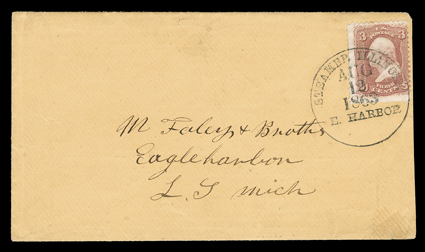 3 3
STEAMER ILLINOIS
AUG
12
1863
E. HARBOR
M Faley & Broths
Eagleharbon
L S Mich